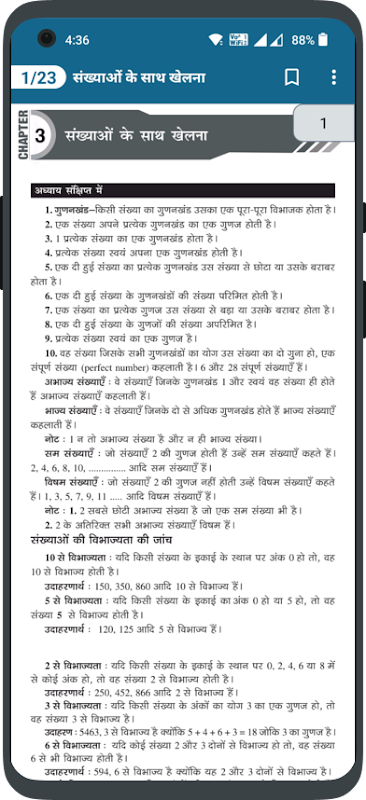 4:36
88%
1/23 संख्याओं के साथ खेलना
1
CHAPTER
3 संख्याओं के साथ खेलना
अध्याय संक्षिप्त में
1. गुणनखंड–किसी संख्या का गुणनखंड उसका एक पूरा-पूरा विभाजक होता है।
2. एक संख्या अपने प्रत्येक गुणनखंड का एक गुणज होती है।
3. 1 प्रत्येक संख्या का एक गुणनखंड होता है।
4. प्रत्येक संख्या स्वयं अपना एक गुणनखंड होती है।
5. एक दी हुई संख्या का प्रत्येक गुणनखंड उस संख्या से छोटा या उसके बराबर
होता है।
6. एक दी हुई संख्या के गुणनखंडों की संख्या परिमित होती है।
7. एक संख्या का प्रत्येक गुणज उस संख्या से बड़ा या उसके बराबर होता है।
8. एक दी हुई संख्या के गुणजों की संख्या अपरिमित है।
9. प्रत्येक संख्या स्वयं का एक गुणज है।
10. वह संख्या जिसके सभी गुणनखंडों का योग उस संख्या का दो गुना हो, एक
संपूर्ण संख्या (perfect number) कहलाती है। 6 और 28 संपूर्ण संख्याएँ हैं।
अभाज्य संख्याएँ : वे संख्याएँ जिनके गुणनखंड 1 और स्वयं वह संख्या ही होते
हैं अभाज्य संख्याएँ कहलाती हैं।
भाज्य संख्याएँ : वे संख्याएँ जिनके दो से अधिक गुणनखंड होते हैं भाज्य संख्याएँ
कहलाती हैं।
नोट : 1 न तो अभाज्य संख्या है और न ही भाज्य संख्या।
सम संख्याएँ : जो संख्याएँ 2 की गुणज होती हैं उन्हें सम संख्याएँ कहते हैं।
2, 4, 6, 8, 10, ............... आदि सम संख्याएँ हैं।
विषम संख्याएँ : जो संख्याएँ 2 की गुणज नहीं होती उन्हें विषम संख्याएँ कहते
हैं। 1, 3, 5, 7, 9, 11 ..... आदि विषम संख्याएँ हैं।
नोट : 1. 2 सबसे छोटी अभाज्य संख्या है जो एक सम संख्या भी है।
2. 2 के अतिरिक्त सभी अभाज्य संख्याएँ विषम हैं।
संख्याओं की विभाज्यता की जांच
10 से विभाज्यता : यदि किसी संख्या के इकाई के स्थान पर अंक 0 हो तो, वह
10 से विभाज्य होती है।
उदाहरणार्थ : 150, 350, 860 आदि 10 से विभाज्य हैं।
5 से विभाज्यता : यदि किसी संख्या के इकाई का अंक 0 हो या 5 हो, तो वह
संख्या 5 से विभाज्य होती है।
उदाहरणार्थ : 120, 125 आदि 5 से विभाज्य हैं।
2 से विभाज्यता : यदि किसी संख्या के इकाई के स्थान पर 0, 2, 4, 6 या 8 में
से कोई अंक हो, तो वह संख्या 2 से विभाज्य होती है।
उदाहरणार्थ : 250, 452, 866 आदि 2 से विभाज्य हैं।
3 से विभाज्यता : यदि किसी संख्या के अंकों का योग 3 का एक गुणज हो, तो
वह संख्या 3 से विभाज्य है।
उदाहरण : 5463, 3 से विभाज्य है क्योंकि 5 + 4 + 6 + 3 = 18 जोकि 3 का गुणज है।
6 से विभाज्यता : यदि कोई संख्या 2 और 3 दोनों से विभाज्य हो तो, वह संख्या
6 से भी विभाज्य होती है।
उदाहरणार्थ : 594, 6 से विभाज्य है क्योंकि यह 2 और 3 दोनों से विभाज्य है।